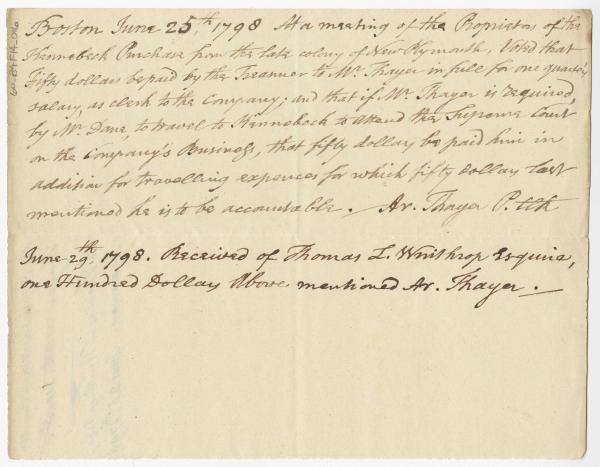 Boston June 25th 1798 At a meeting of the Proprietors of the
Kennebeck Purchase from the late colony of New Plymouth, Voted that
Fifty dollars be paid by the Treasurer to Mr. Thayer in full for one quarters
salary, as clerk to the Company; and that if Mr. Thayer is required,
by Mr. Dane, to travel to Kennebeck to attend the Supreme Court
on the Company's Business, that fifty dollars be paid him in
addition for travelling expences for which fifty dollars last
mentioned he is to be accountable. Ar. Thayer P. Clk
June 29th, 1798. Received of Thomas L. Winthrop Esquire,
one Hundred Dollars Above mentioned Ar. Thayer.